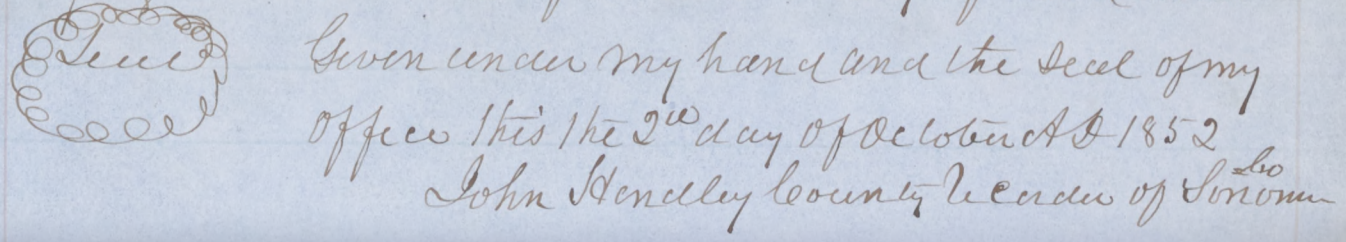 Seal
Given under my hand and the seal of my
office this the 2nd day of October A D 1852
John Hendley County Recorder of Sonoma Co